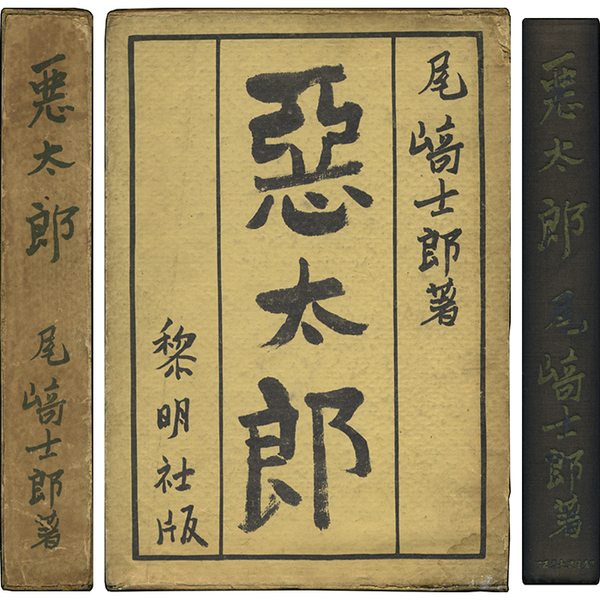 悪太郎
尾﨑士郎著
尾﨑士郎著
惡太郎
黎明社版
悪太郎
尾﨑士郎著